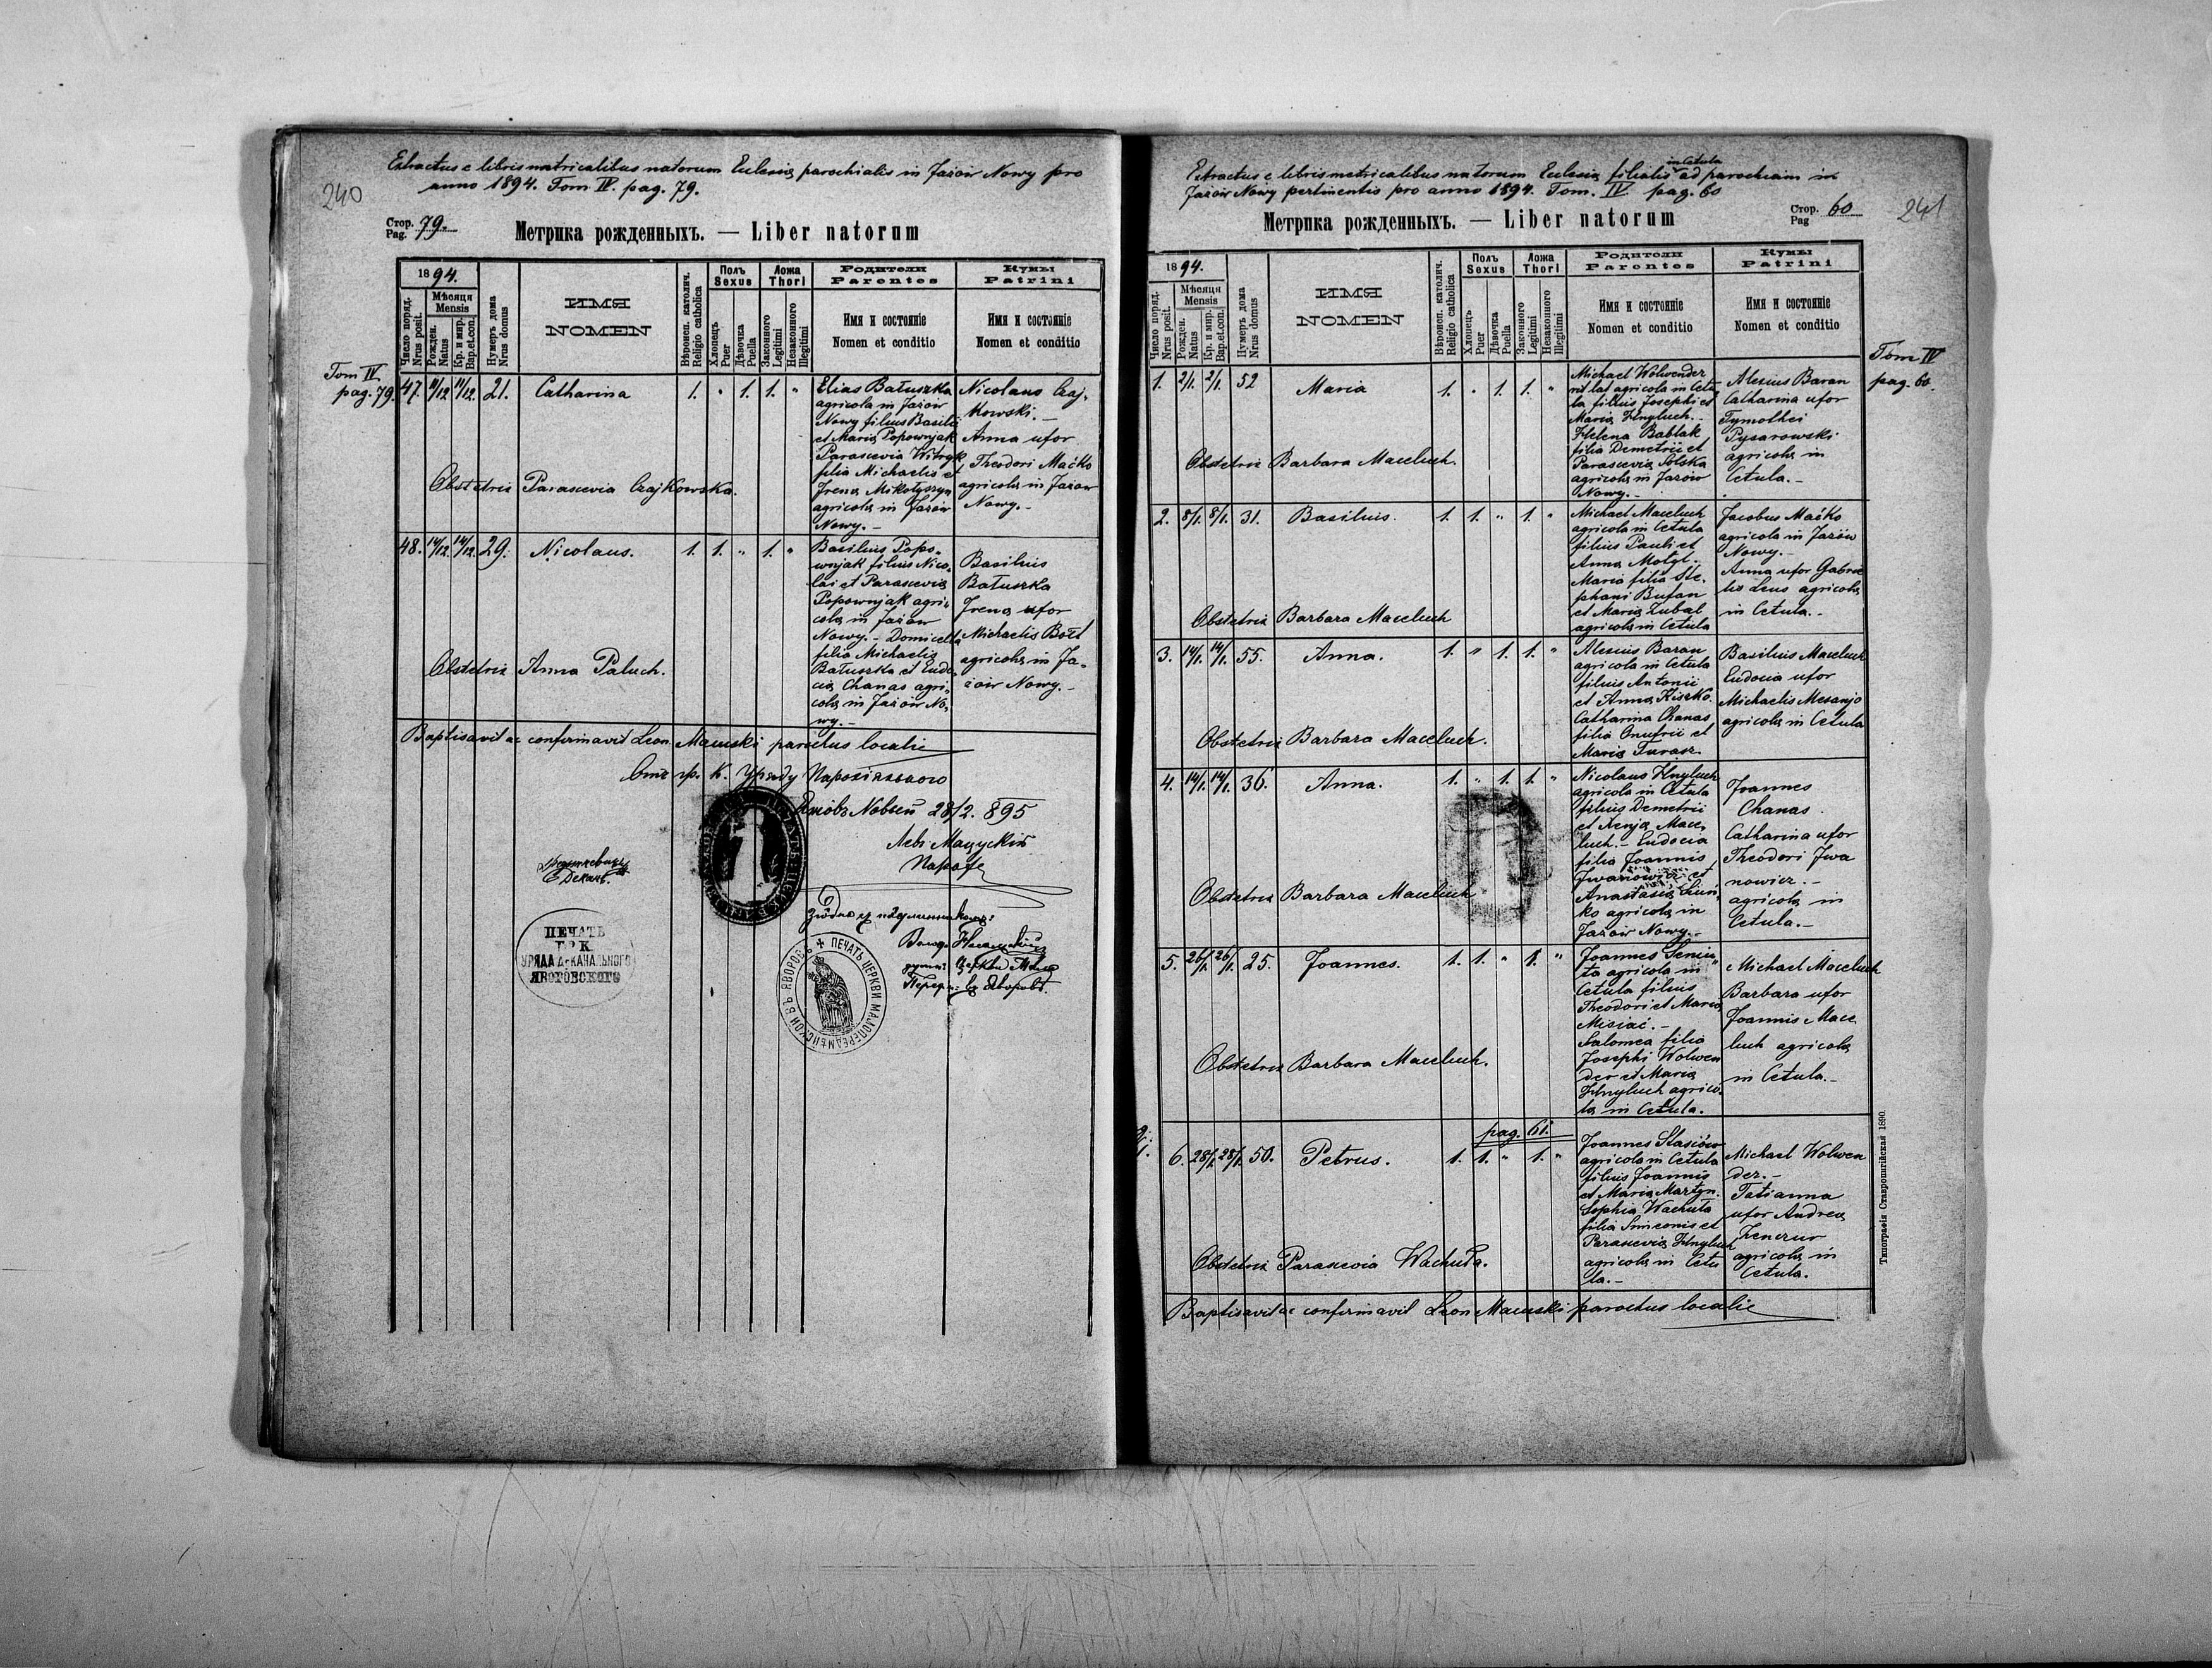 240
Extractus e libris matricalibus natorum Eclesiæ parochialis in Jażów Nowy pro
anno 1894. Tom IV. pag. 79.
Стор. 79.
Pag.
Метрика рожденныхъ. — Liber natorum
1894.
Число поряд.
Nrus posit.
Мѣсяця
Mensis
Рожден.
Natus
Кр. и мир.
Bap.et.con.
Нумеръ дома
Nrus domus
ИМЯ
NOMEN
Вѣроисп. католич.
Religio catholica
Полъ
Sexus
Хлопецъ
Puer
Дѣвочка
Puella
Ложа
Thori
Законного
Legitimi
Незаконного
Illegitimi
Родители
Parentes
Имя и состоянiе
Nomen et conditio
Кумы
Patrini
Имя и состоянiе
Nomen et conditio
Tom IV.
pag. 79.
47. 11/12 14/12. 21. Catharina 1. " 1. 1. "
Elias Batuszka
agricola in Jażów
Nowy filius Basilii
et Maria Popownjak
Parascevia Witryk
filia Michaelis et
Irena Mikołyszyn
agricola in Jażów
Nowy. –
Nicolaus Czaj-
kowski. –
Anna uxor
Theodori Maćko
agricola in Jażów
Nowy. –
Obstetrix Parascevia Czajkowska.
48. 14/12. 14/12. 29. Nicolaus. 1. 1. " 1. "
Basilius Popo-
wnjak filius Nico-
lai et Parascevia
Popownjak agri-
cola in Jażów
Nowy. – Domicella
filia Michaelis
Batuszka et Eudo-
cia Chanas agri-
cola in Jażów No-
wy. –
Basilius
Batuszka
Irena uxor
Michaelis
agricola in Ja-
żów Nowy. –
Obstetrix Anna Paluch.
Baptisavit ac confirmavit Leon Macuski parochus localis
Отъ гр. к. Уряду Парохіяльного
28/2. 895
Левъ Мацускій
Парох
Деканъ.
ПЕЧАТЬ
Г Р К.
УРЯДА ДЕКАНАЛЬНОГО
ЯВОРОВСКОГО
ПЕЧАТЬ ЦЕРКВИ МАЛОПЕРЕДМѢЙСКОЙ ВЪ ЯВОРОВѢ
241
Extractus e libris matricalibus natorum Eclesiæ filialis in Cetula ad parochiam in
Jażów Nowy pertinentis pro anno 1894. Tom. IV. pag. 60
Стор. 60
Pag
Метрика рожденныхъ. — Liber natorum
1894.
Число поряд.
Nrus posit.
Мѣсяця
Mensis
Рожден.
Natus
Кр. и мир.
Bap.et.con.
Нумеръ дома
Nrus domus
ИМЯ
NOMEN
Вѣроисп. католич.
Religio catholica
Полъ
Sexus
Хлопецъ
Puer
Дѣвочка
Puella
Ложа
Thori
Законного
Legitimi
Незаконного
Illegitimi
Родители
Parentes
Имя и состоянiе
Nomen et conditio
Кумы
Patrini
Имя и состоянiе
Nomen et conditio
Tom IV
pag. 60.
1. 2/1. 2/1. 52 Maria 1. " 1. 1. "
Michael Wolwender
rit lat agricola in Cetu-
la filius Josephi et
Maria Hnyluch. –
Helena Bablak
filia Demetrii et
Parascevia Solska
agricola in Jażów
Nowy. –
Alexius Baran
Catharina uxor
Tymothei
Pysarowski
agricola in
Cetula. –
Obstetrix Barbara Maceluch.
2. 8/1. 8/1. 31. Basilius. 1. 1. " 1. "
Michael Maceluch
agricola in Cetula
filius Pauli et
Anna Motyl. –
Maria filia Ste-
phani Bufan
et Maria Zubal
agricola in Cetula
Jacobus Maćko
agricola in Jażów
Nowy. –
Anna uxor Gabrie
lis Lius agricola
in Cetula. –
Obstetrix Barbara Maceluch
3. 14/1. 14/1. 55. Anna. 1. " 1. 1. "
Alexius Baran
agricola in Cetula
filius Antonii
et Anna Kiszko.
Catharina Chanas
filia Onufrii et
Maria Tarasz.
Basilius Maceluch
Eudocia uxor
Michaelis Mesanjo
agricola in Cetula
Obstetrix Barbara Maceluch.
4. 14/1. 14/1. 36. Anna. 1. " 1. 1. "
Nicolaus Hnyluch
agricola in Cetula
filius Demetrii
et Xenja Mace-
luch. – Eudocia
filia Joannis
Iwanowicz et
Anastasia
ko agricola in
Jażów Nowy. –
Joannes
Chanas.
Catharina uxor
Theodori Iwa
nowicz. –
agricola in
Cetula. –
Obstetrix Barbara Maceluch
5. 26/1. 26/1. 25. Joannes. 1. 1. " 1. "
Joannes Seniu-
ta agricola in
Cetula filius
Theodori et Maria
Misiać. –
Salomea filia
Josephi Wolwen
der et Maria
Hnyluch agrico-
la in Cetula.
Michael Maceluch
Barbara uxor
Joannis Mace
luch agricola
in Cetula. –
Obstetrix Barbara Maceluch.
pag. 61.
6. 28/1. 28/1. 50. Petrus. 1. 1. " 1. "
Joannes Stasiów
agricola in Cetula
filius Joannis
et Maria Martyn.
Sophia Wachuta
filia Simeonis et
Parascevia Hnyluch
agricola in Cetu
la. –
Michael Wolwen
der. –
Tatianna
uxor Andrea
agricola in
Cetula.
Obstetrix Parascevia Wachuta.
Baptisavit ac confirmavit Leon Macuski parochus localis
Типографія Ставропигійская 1890.